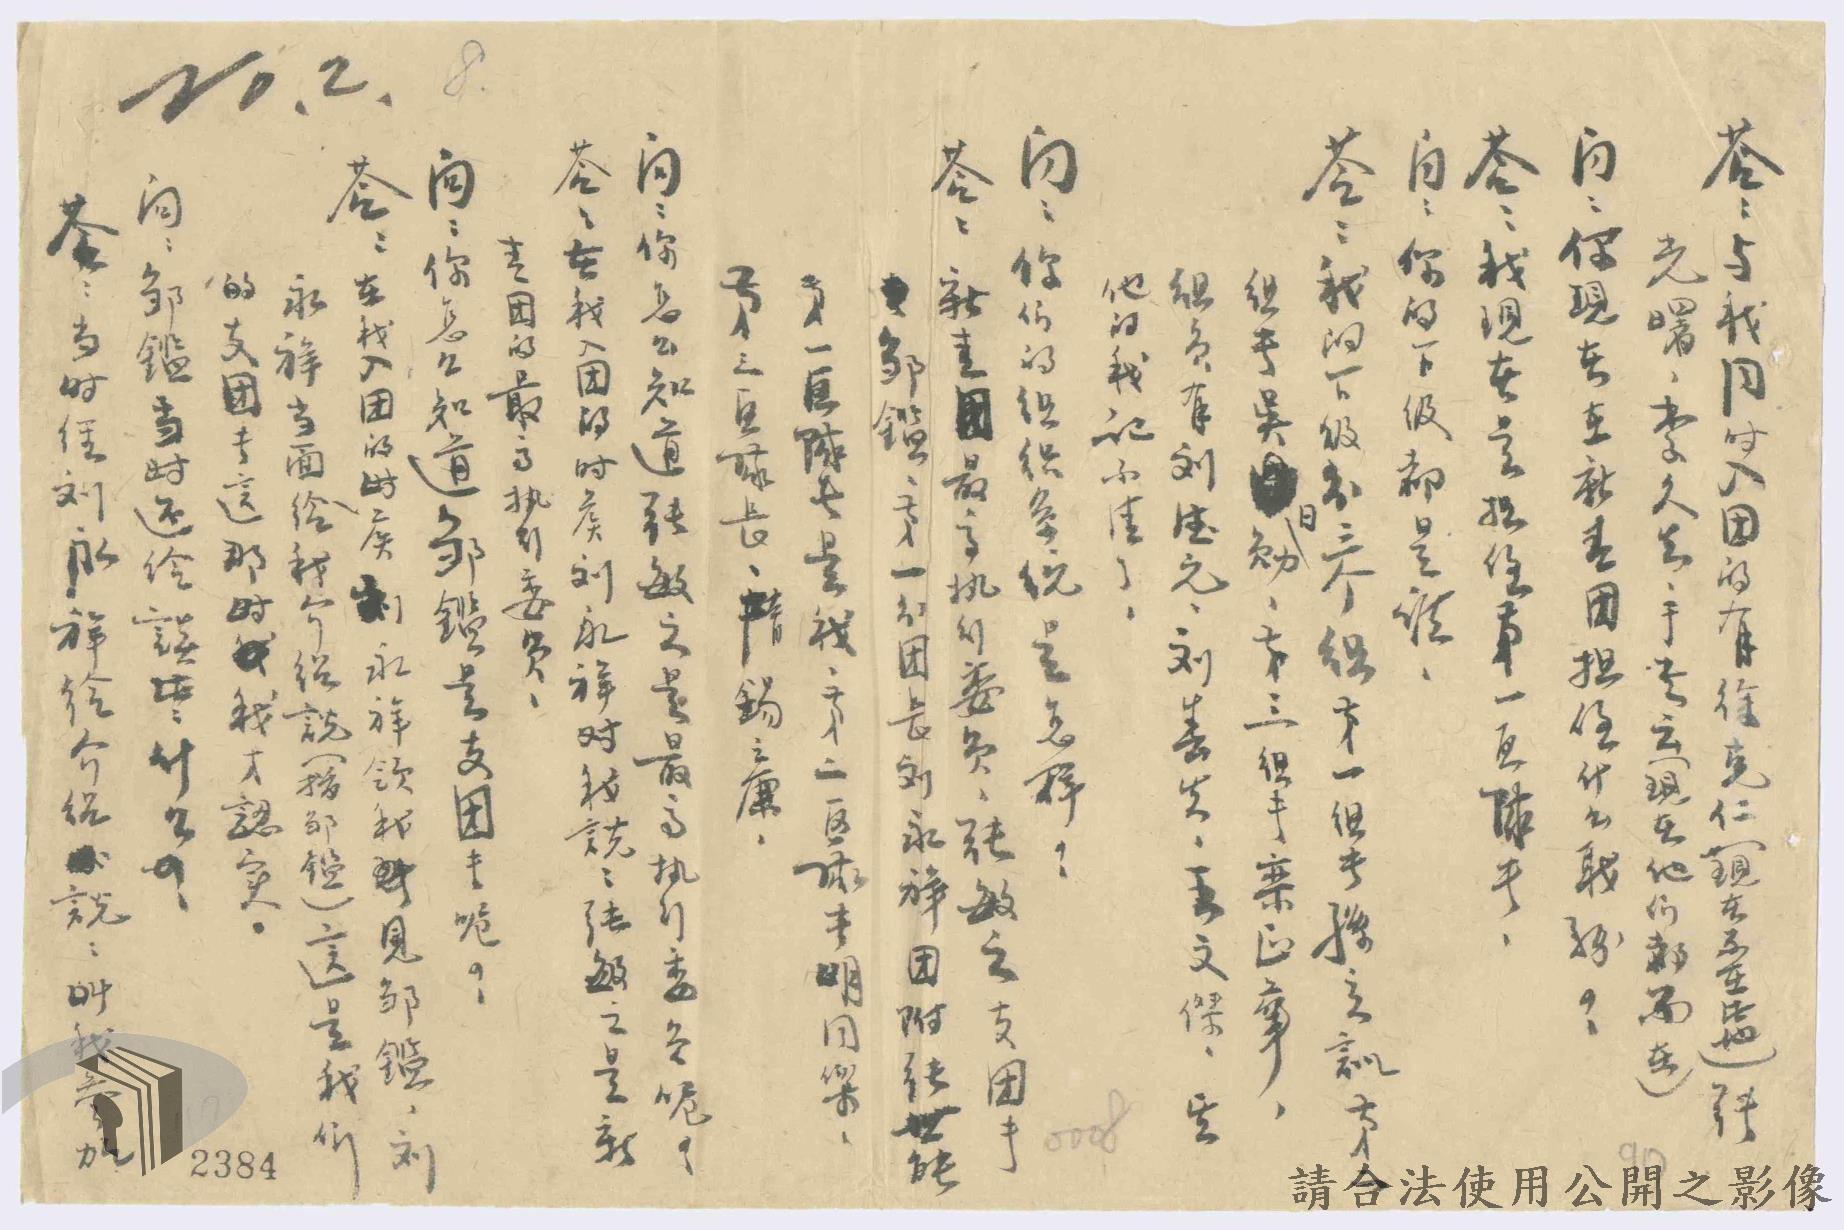 20.2.
8.
答：与我同时入团的有徐克仁（現在不在此地）張
光曙、李久長、于 云（現在他们都不在）
问：你現在在新青团担任什么职務？
答：我現在是担任第一区隊長、
问：你的下级都是誰、
答：我的下级分三个组第一组長孫立訓第二
组長吴日勉、第三组長栾正華、
组员有刘德元、刘春生、王文傑、其
他的我記不清了、
问：你们的组织系统是怎样？
答：新青團最高执行委员、張敏之支团長
邹鑑、第一分团長刘永祥团附張世能
第一区隊長是我、第二区隊長明同樂、
第三区隊長、錫廉、
问：你怎么知道張敏之是最高执行委员呢？
答：在我入团的时候刘永祥对我説：張敏之是新
青团的最高执行委员、
问：你怎么知道邹鑑是支团長呢？
答：在我入团的时候刘永祥領我見邹鑑、刘
永祥当面给我介绍説（指邹鑑）這是我们
的支团長這那时我才認寔。
问：邹鑑当时还给談些什么？
答：当时經刘永祥给介绍説：叫我参加
0008
90
2384
請合法使用公開之影像